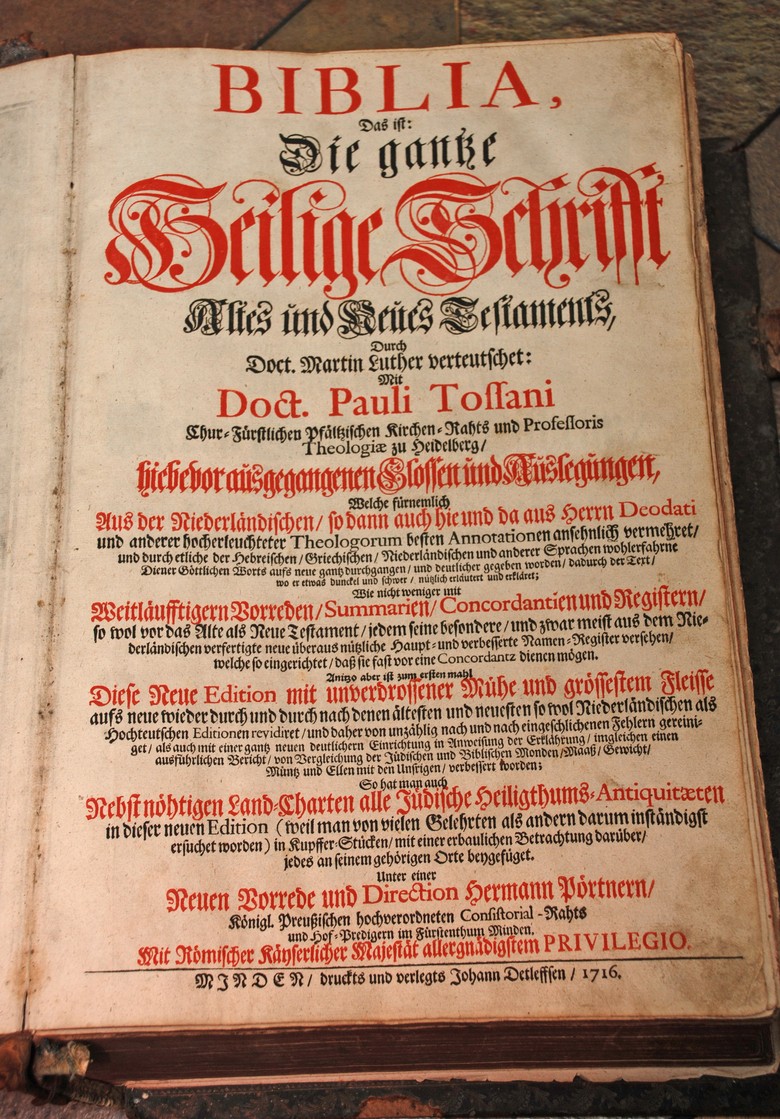 BIBLIA,
Das ist:
Die gantze
Heilige Schrifft
Altes und Neues Testaments,
Durch
Doct. Martin Luther verteutschet:
Mit
Doct. Pauli Tossani
Chur-Fürstlichen Pfältzischen Kirchen-Rahts und Professoris
Theologiæ zu Heidelberg/
hiebevor ausgegangenen Glossen und Auslegungen,
Welche fürnemlich
Aus der Niederländischen/ so dann auch hie und da aus Herrn Deodati
und anderer hocherleuchteter Theologorum besten Annotationen ansehnlich vermehret/
und durch etliche der Hebreischen/ Griechischen/ Niederländischen und anderer Sprachen wohlerfahrne
Diener Göttlichen Worts aufs neue gantz durchgangen/ und deutlicher gegeben worden/ dadurch der Text/
wo er etwas dunckel und schwer/ nützlich erläutert und erkläret;
Wie nicht weniger mit
Weitläufftigern Vorreden/ Summarien/ Concordantien und Registern/
so wol vor das Alte als Neue Testament/ jedem seine besondere/ und zwar meist aus dem Nie-
derländischen verfertigte neue überaus nützliche Haupt- und verbesserte Namen-Register versehen/
welche so eingerichtet/ daß sie fast vor eine Concordantz dienen mögen.
Anitzo aber ist zum ersten mahl
Diese Neue Edition mit unverdrossener Mühe und grössestem Fleisse
aufs neue wieder durch und durch nach denen ältesten und neuesten so wol Niederländischen als
Hochteutschen Editionen revidiret/ und daher von unzählig nach und nach eingeschlichenen Fehlern gereini-
get/ als auch mit einer gantz neuen deutlichern Einrichtung in Anweisung der Erklährung/ imgleichen einen
ausführlichen Bericht/ von Vergleichung der Jüdischen und Biblischen Monden/ Maaß/ Gewicht/
Müntz und Ellen mit den Unsrigen/ verbessert worden;
So hat man auch
Nebst nöhtigen Land-Charten alle Jüdische Heiligthums-Antiquitæten
in dieser neuen Edition (weil man von vielen Gelehrten als andern darum inständigst
ersuchet worden) in Kupffer-Stücken/ mit einer erbaulichen Betrachtung darüber/
jedes an seinem gehörigen Orte beygefüget.
Unter einer
Neuen Vorrede und Direction Hermann Pörtnern/
Königl. Preußischen hochverordneten Consistorial-Rahts
und Hof-Predigern im Fürstenthum Minden.
Mit Römischer Käyserlicher Majestät allergnädigstem PRIVILEGIO.
MINDEN/ druckts und verlegts Johann Detleffsen/ 1716.